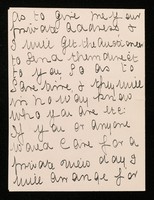 as to give me your
private address &
I will get the
to send them direct
to you so as to
save time & they will
in no way know
who you are etc
If you or anyone
would care for a
private miles day I
will arrange for